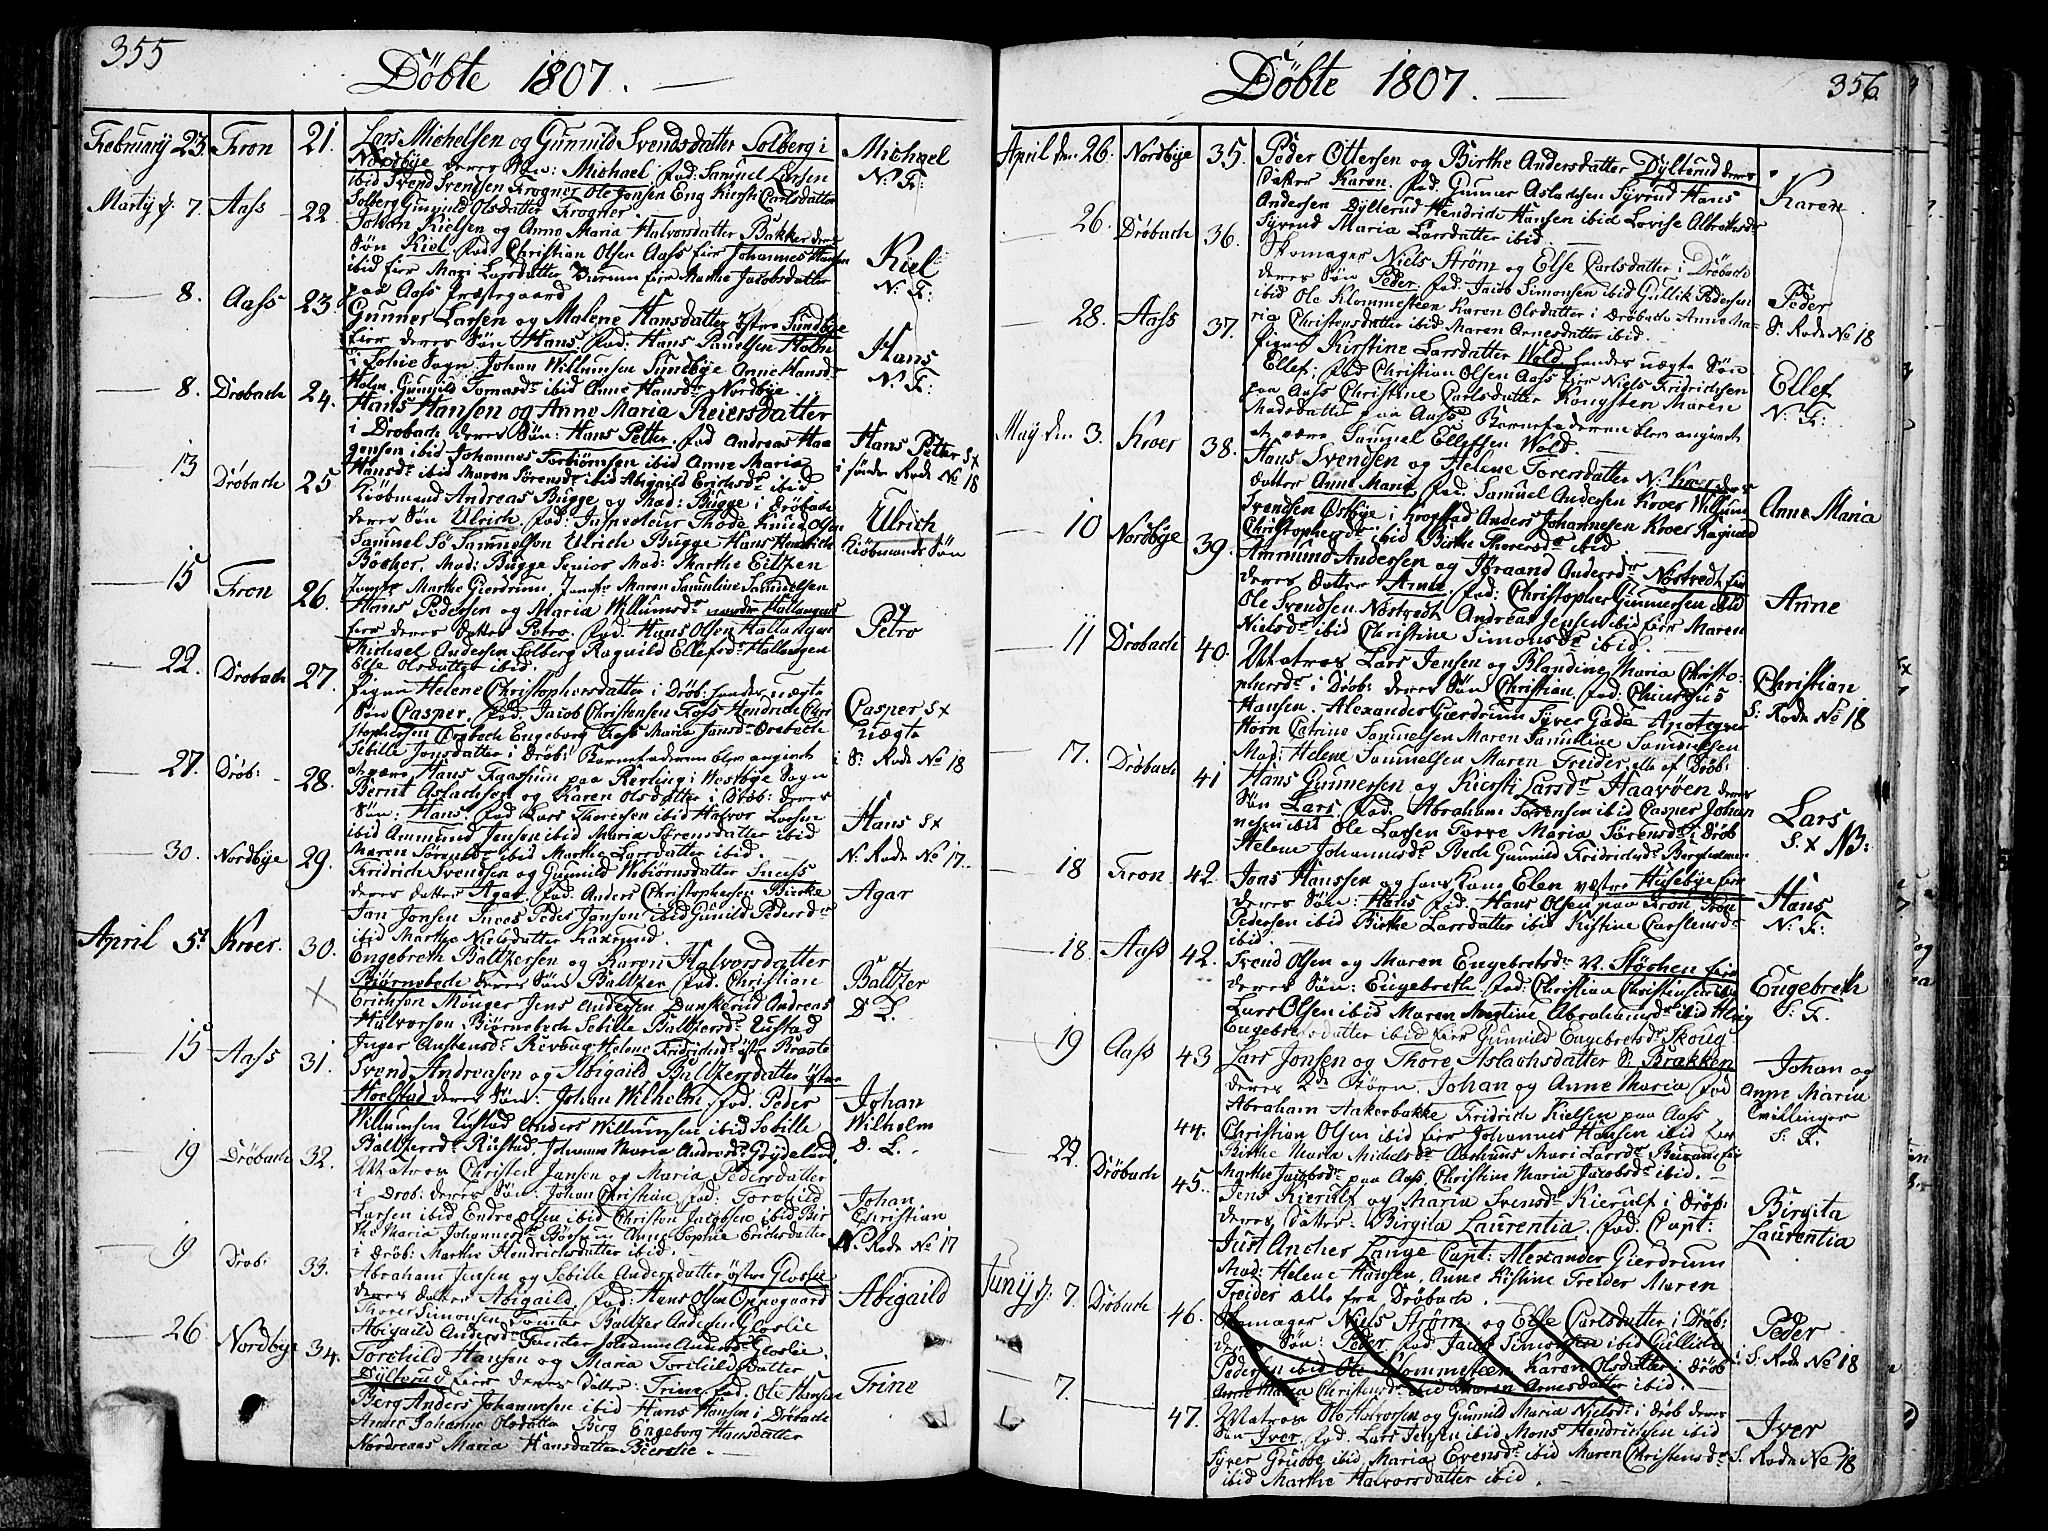 355
Döbte 1807.
Februarÿ 23. Fron 21. Lars Michelsen og Gunnild Svendsdatter Solberg i
Nordbÿe deres Søn: Michael fad: Samuel Larsen
ibid Svend Svendsen Frogner Ole Jonsen Eng Kirsti Carlsdatter
Solberg Gunnild Olsdatter Frogner
Michael
N: F:
Martÿ d. 7. Aass 22. Johan Kielsen og Anne Maria Halvorsdatter Bakker deres
Søn Kiel fad: Christian Olsen Aass Eier Johannes Hansen
ibid Eier Mari Larsdatter Eier Marthe Jacobsdatter
paa Aass Præstegaard
Kiel
N: F:
8. Aass 23. Gunner Larsen og Malene Hansdatter østre Sundbÿe
Eier deres Søn Hans fad: Hans Paulsen Holm
i Sogn Johan Willumsen Sundbÿe Anne Hansdr
Holm Gunnild Tomasdr ibid Anne Hansdr Nordbÿe
Hans
N: F:
8. Drøbach 24. Hans Hansen og Anne Maria Reiersdatter
i Drøbach deres Søn: Hans Petter fad Andreas Haa
gensen ibid Johannes Torbiørnsen ibid Anne Maria
Hansdr ibid Maren Sørensdr ibid Abigaild Erichsdr ibid
Hans Petter Sx
i søndre Rode No 18
13 Drøbach 25 Kiøbmand Andreas Bugge og Mad: Bugge i Drøbach
deres Søn Ulrich fad: Inspecteur Thode Knud Olsen
Samuel Samuelsen Ulrich Bugge Hans Hendrich
Böcher, Mad: Bugge Senior Mad: Marthe Eitzen
Jomfr Marthe Gierdrum, Jomfr Maren Samuline Samuelsen
Ulrich
Kiøbmands Søn
15 Fron 26. Hans Pedersen og Maria Willumsdr nordre Hallangen
Eier deres datter Petro fad: Hans Olsen Hallangen
Michael Andersen Solberg Ragnild Ellefsdr Hallangen
Else Olsdatter ibid.
Petro
22. Drøbach 27. Pigen Helene Christophersdatter i Drøb: hendes uægte
Søn Casper, fad: Jacob Christensen Hendrich Chri
stophersen Drøbach Engeborg Maria Jansdr Drøbach
Sebille Jonsdatter i Drøb: Barnefaderen blev angivet
at være Hans paa i Westbÿe Sogn
Casper Sx
uægte
i S: Rode No 18
27. Drøb: 28. Bernt Aslachsen og Karen Olsdatter i Drøb: deres
Søn: Hans fad Lars Thoresen ibid Halvor Larsen
ibid Ammund Jensen ibid Maria Sørensdatter ibid
Maren Sørensdr ibid Marthe Larsdatter ibid
Hans Sx
N. Rode No 17.
30. Nordbÿe 29. Fridrich Svendsen og Gunnild Webiørnsdatter
deres datter Agar fad: Anders Christophersen Bierke
Jan Jonsen Peder Jansen ibid Gunild Pedersdr
ibid Marthe Nielsdatter
Agar
April 5t Kroer. 30. Engebreth Baltzersen og Karen Halvorsdatter
Biørnebech deres Søn Baltzer fad: Christian
Erichsen Jens Andersen Andreas
Halvorsen Biørnebech Sebille Baltzersdr Rustad
Baltzer
D L.
15 Aass 31. Inger Anstensdr Helene Fridrichsdr østre Braate
Svend Andreasen og Abigaild Baltzersdatter østre
Hoelstad deres Søn: Johan Wilhelm fad: Peder
Willumsen Rustad Anders Willumsen ibid Sebille
Baltzersdr Rustad, Johanne Maria Andersdr
Johan
Wilhelm
D. L.
19 Drøbach 32. Matros Christen Jansen og Maria Pedersdatter
i Drøb: deres Søn: Johan Christian fad: Torchild
Larsen ibid Endre Olsen ibid Christen Jacobsen ibid Bir
the Maria Johannesdr Anne Sophie Erichsdatter
i Drøb: Marthe Hendrichsdatter ibid.
Johan
Christian
N. Rode No 17
19 Drøb: 33. Abraham Jensen og Sebille Andersdatter østre Gloslie
deres datter Abigaild fad: Hans Olsen Oppegaard
Thorer Simonsen Baltzer Andersen Gloslie
Abigaild Andersdr Johanne Andersdr Gloslie
Abigaild
26 Nordbÿe 34. Torchild Hansen og Maria Torchildsdatter
Dÿlterud Eier deres datter: Trine fad: Ole Hansen
Berg Anders Johannesen ibid Hans Hansen i Drøbach
Anne Johanne Olsdatter Berg Engeborg Hansdatter
Nordreaas Maria Hansdatter
Trine
356
Döbte 1807.
April den 26. Nordbÿe 35. Peder Ottersen og Birthe Andersdatter Dÿlterud deres
datter Karen. fad: Gunner Aslachsen Sÿrud Hans
Andersen Dÿlterud Hendrich Hansen ibid Lovise Albrethsdr
Sÿrud Maria Larsdatter ibid.
Karen
26. Drøbach 36. Skomager Niels Strøm og Else Carlsdatter i Drøbach
deres Søn Peder fad: Jacob Simonsen ibid Gullik Pedersen
ibid Ole Klommesteen Karen Olsdatter i Drøbach Anne Ma
ria Christensdatter ibid Maren Arnesdatter ibid.
Peder
S. Rode No 18
28. Aass 37. Pigen Kirstine Larsdatter Wold hendes uægte Søn
Ellef; fad: Christian Olsen Aass Eier Niels Fridrichsen
paa Aass Christine Carlsdatter Kongsten Maren
Madsdatter paa Aass Barnefaderen blev angivet
at være Samuel Ellefsen Wold.
Ellef
N: F:
Maÿ den 3. Kroer 38. Hans Svendsen og Helene Torersdatter N. Kroer deres
datter Anne Maria fad: Samuel Andersen Kroer Willum
Svendsen Østbÿe i Krogstad Anders Johannesen Kroer Ragnild
Christophersdr ibid Birthe Thorersdr ibid
Anne Maria
10 Nordbÿe 39. Ammund Andersen og Andersdr Nøstvedt Eier
deres datter Anne. fad: Christopher Gunnersen ibid
Ole Svendsen Nøstvedt Andreas Jensen ibid Eier Maren
Nielsdr ibid Christine Simonsdr ibid.
Anne
11 Drøbach 40. Matros Lars Jensen og Blandine Maria Christo-
phersdr i Drøb: deres Søn Christian, fad: Chirurgus
Hansen. Alexander Gierdrum Sÿver Gade Apoteqver
Horn Catrine Samuelsen Maren Samuline Samuelsen
Mad: Helene Samuelsen Maren Treider, alle af Drøb:
Christian
S: Rode No 18
17. Drøbach 41 Hans Gunnersen og Kiersti Larsdr Haavøen deres
Søn Lars fad: Abraham Sørensen ibid Casper Johan
nesen ibid Ole Larsen Torre Maria Sørensdr i Drøb
Helene Johannesdr Bech Gunnild Fridrichsdr Bergholmen
Lars
S. x NB:
18 Fron 42. Jons Hanssen og hans Kone Elen vestre Husebÿe Eier
deres Søn: Hans fad: Hans Olsen paa Fron Iver
Pedersen ibid Birthe Larsdatter ibid Kistine Carstensdr
ibid
Hans
N: F:
18. Aass 42. Trend Olsen og Maren Engebretsdr V. Støchen Eier
deres Søn: Engebreth fad: Christian Christensen ibid
Lars Olsen ibid Maren Abrahamsdr ibid
Engebretsdatter ibid Eier Gunnild Engebretsdr Skoug
Engebreth
S. F.
19 Aass 43 Lars Jonsen og Thore Aslachsdatter S. Brækken
deres 2de Børn, Johan og Anne Maria fad
Abraham Aakerbakke Fridrich Kielsen paa Aass
44. Christian Olsen ibid Eier Johannes Hansen ibid
Birthe Maria Michelsdr Mari Larsdr Eier
Marthe Jacobsdr paa Aass, Christine Maria Jacobsdr ibid.
Johan og
Anne Maria
Tvillinger
S. F.
22. Drøbach 45. Jens Kierulf og Maria Svensdr Kierulf i Drøb:
deres datter: Birgita Laurentia. fad: Capt:
Just Ancher Lange Capt: Alexander Gierdrum
Mad: Helene Hansen, Anne Kistine Treider Maren
Treider alle fra Drøbach.
Birgita
Laurentia
Junÿ d. 7. Drøbach 46. Skomager Niels Strøm og Else Carlsdatter i Drøb:
deres Søn: Peder fad: Jacob Simonsen ibid Gullich
Pedersen ibid Ole Klommesteen Karen Olsdatter i Drøb
Anne Maria Christensdr ibid Maren Arnesdatter ibid.
Peder
i S. Rode No 18
7. 47. Matros Ole Halvorsen og Gunnild Maria Nielsdr i Drøb deres
Søn Iver. fad. Lars Jensen ibid Mons Hendrichsen ibid
Sÿver Grubbe ibid, Maria Evensdr ibid Maren Christensdr
ibid Marthe Halvorsdatter ibid.
Iver
S. Rode No 18